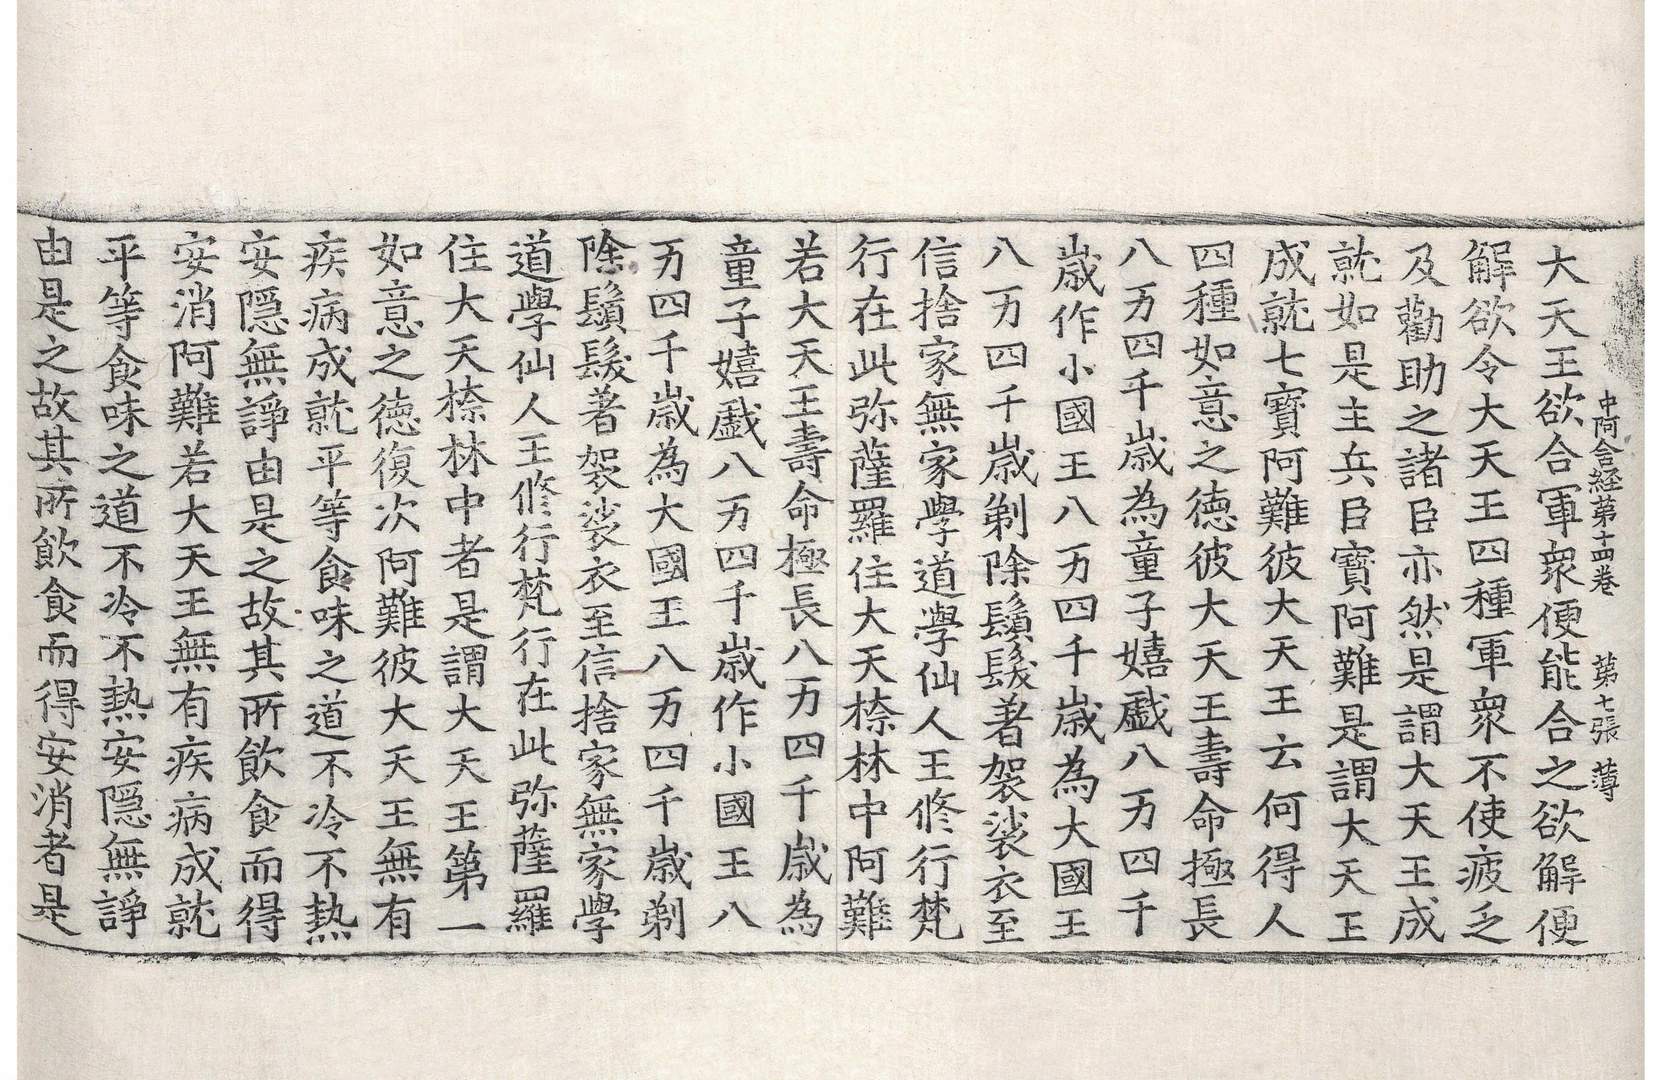 中阿含経第十四卷 第七張 薄
大天王欲合軍衆便能合之欲解便
解欲令大天王四種軍衆不使疲乏
及勸助之諸臣亦然是謂大天王成
就如是主兵臣寶阿難是謂大天王
成就七寶阿難彼大天王云何得人
四種如意之徳彼大天王壽命極長
八万四千歲為童子嬉戱八万四千
歲作小國王八万四千歲為大國王
八万四千歲剃除鬚髮著袈裟衣至
信捨家無家學道學仙人王修行梵
行在此弥薩羅住大天㮈林中阿難
若大天王壽命極長八万四千歲為
童子嬉戱八万四千歲作小國王八
万四千歲為大國王八万四千歲剃
除鬚髮著袈裟衣至信捨家無家學
道學仙人王修行梵行在此弥薩羅
住大天㮈林中者是謂大天王第一
如意之徳復次阿難彼大天王無有
疾病成就平等食味之道不冷不熱
安隱無諍由是之故其所飲食而得
安消阿難若大天王無有疾病成就
平等食味之道不冷不熱安隱無諍
由是之故其所飲食而得安消者是